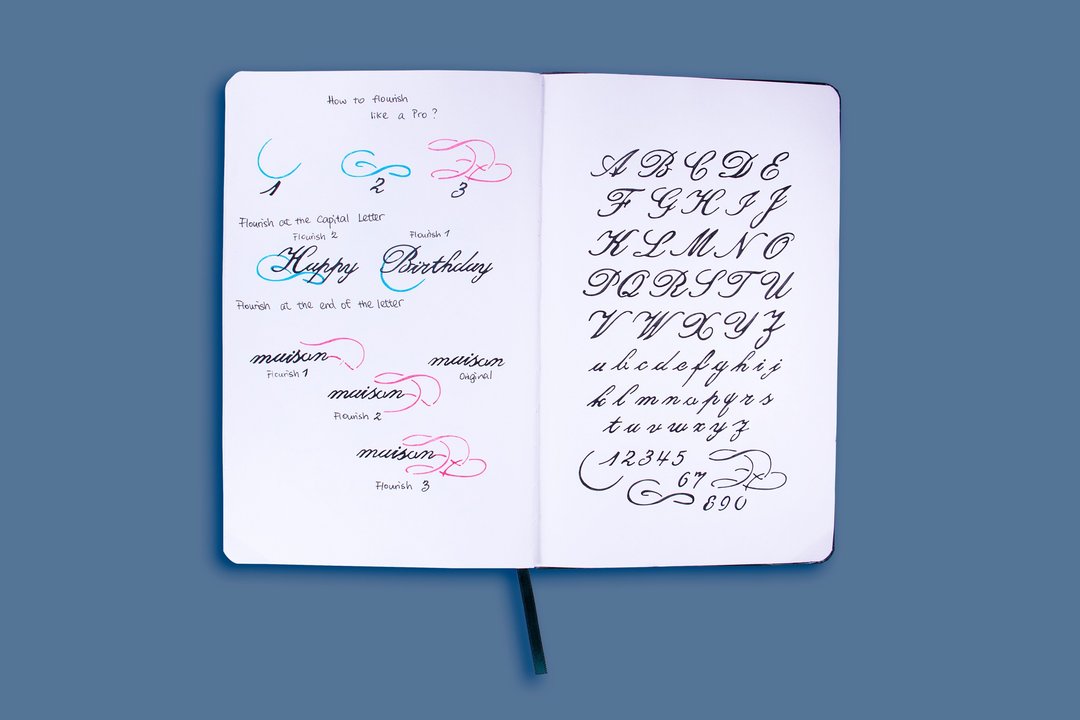 How to flourish
like a Pro?
1 2 3
Flourish at the Capital Letter
Flourish 2 Flourish 1
Happy Birthday
Flourish at the end of the letter
maison
Flourish 1
maison
Original
maison
Flourish 2
maison
Flourish 3
A B C D E
F G H I J
K L M N O
P Q R S T U
V W X Y Z
a b c d e f g h i j
k l m n o p q r s
t u v w x y z
1 2 3 4 5
6 7
8 9 0